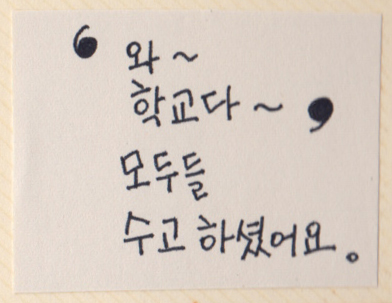 ‘ 와~
학교다~ ’
모두들
수고 하셨어요。